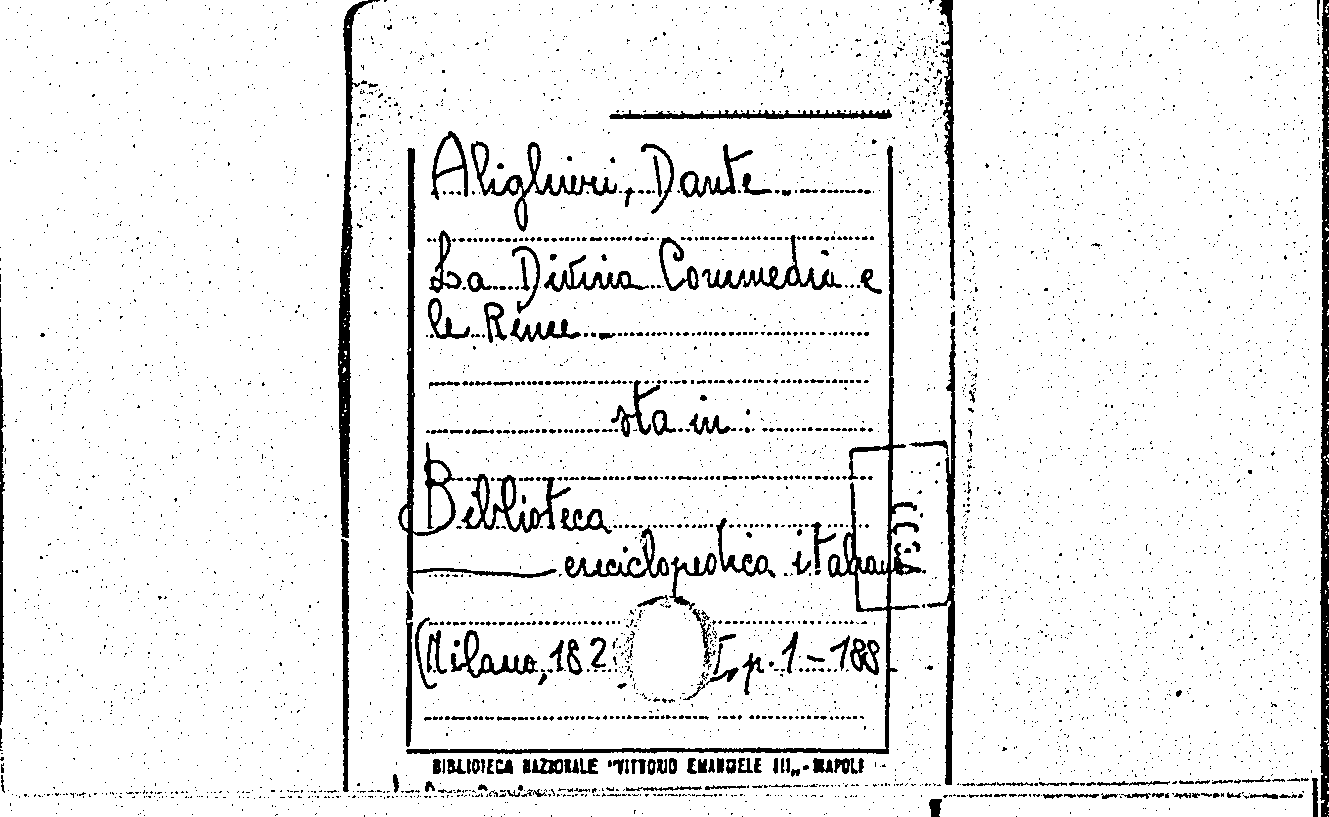 Alighieri, Dante.
La Divina Commedia e
le Rime.
sta in:
Biblioteca
enciclopedica italiana
(Milano, 182 I, p. 1-188
BIBLIOTECA NAZIONALE "VITTORIO EMANUELE III„ - NAPOLI